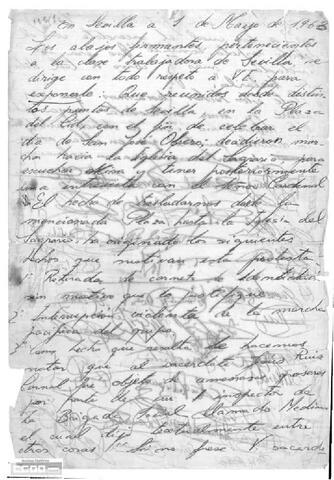 En Sevilla a 1 de Mayo de 196
Los abajos firmantes pertenecientes
a la clase trabajadora de Sevilla, se
dirige con todo respeto a V.E. para
exponerle: Que reunidos desde distin-
tos puntos de Sevilla, en la Plaza
del con el fin de celebrar el
dia de San José Obrero, decidieron mar-
char hacia la Iglesia del Sagrario para
escuchar misa y tener posteriormente
una entrevista con el Cardenal
El hecho de trasladarnos desde la
mencionada Plaza hasta la Iglesia del
Sagrario, ha originado los siguientes
hechos que motivan esta protesta:
1º Retirada de carnets de identidad
sin motivo que la justifique
2º Interrupción violenta de la marcha
pacifica del grupo.
3º Como hecho que resalta le hacemos
notar que al sacerdote
fue objeto de amenazas
por parte de inspector de
la Brigada Social Camacho Medina
el cual dijo textualmente entre
otras cosas: Si no fuese V. sacerdo